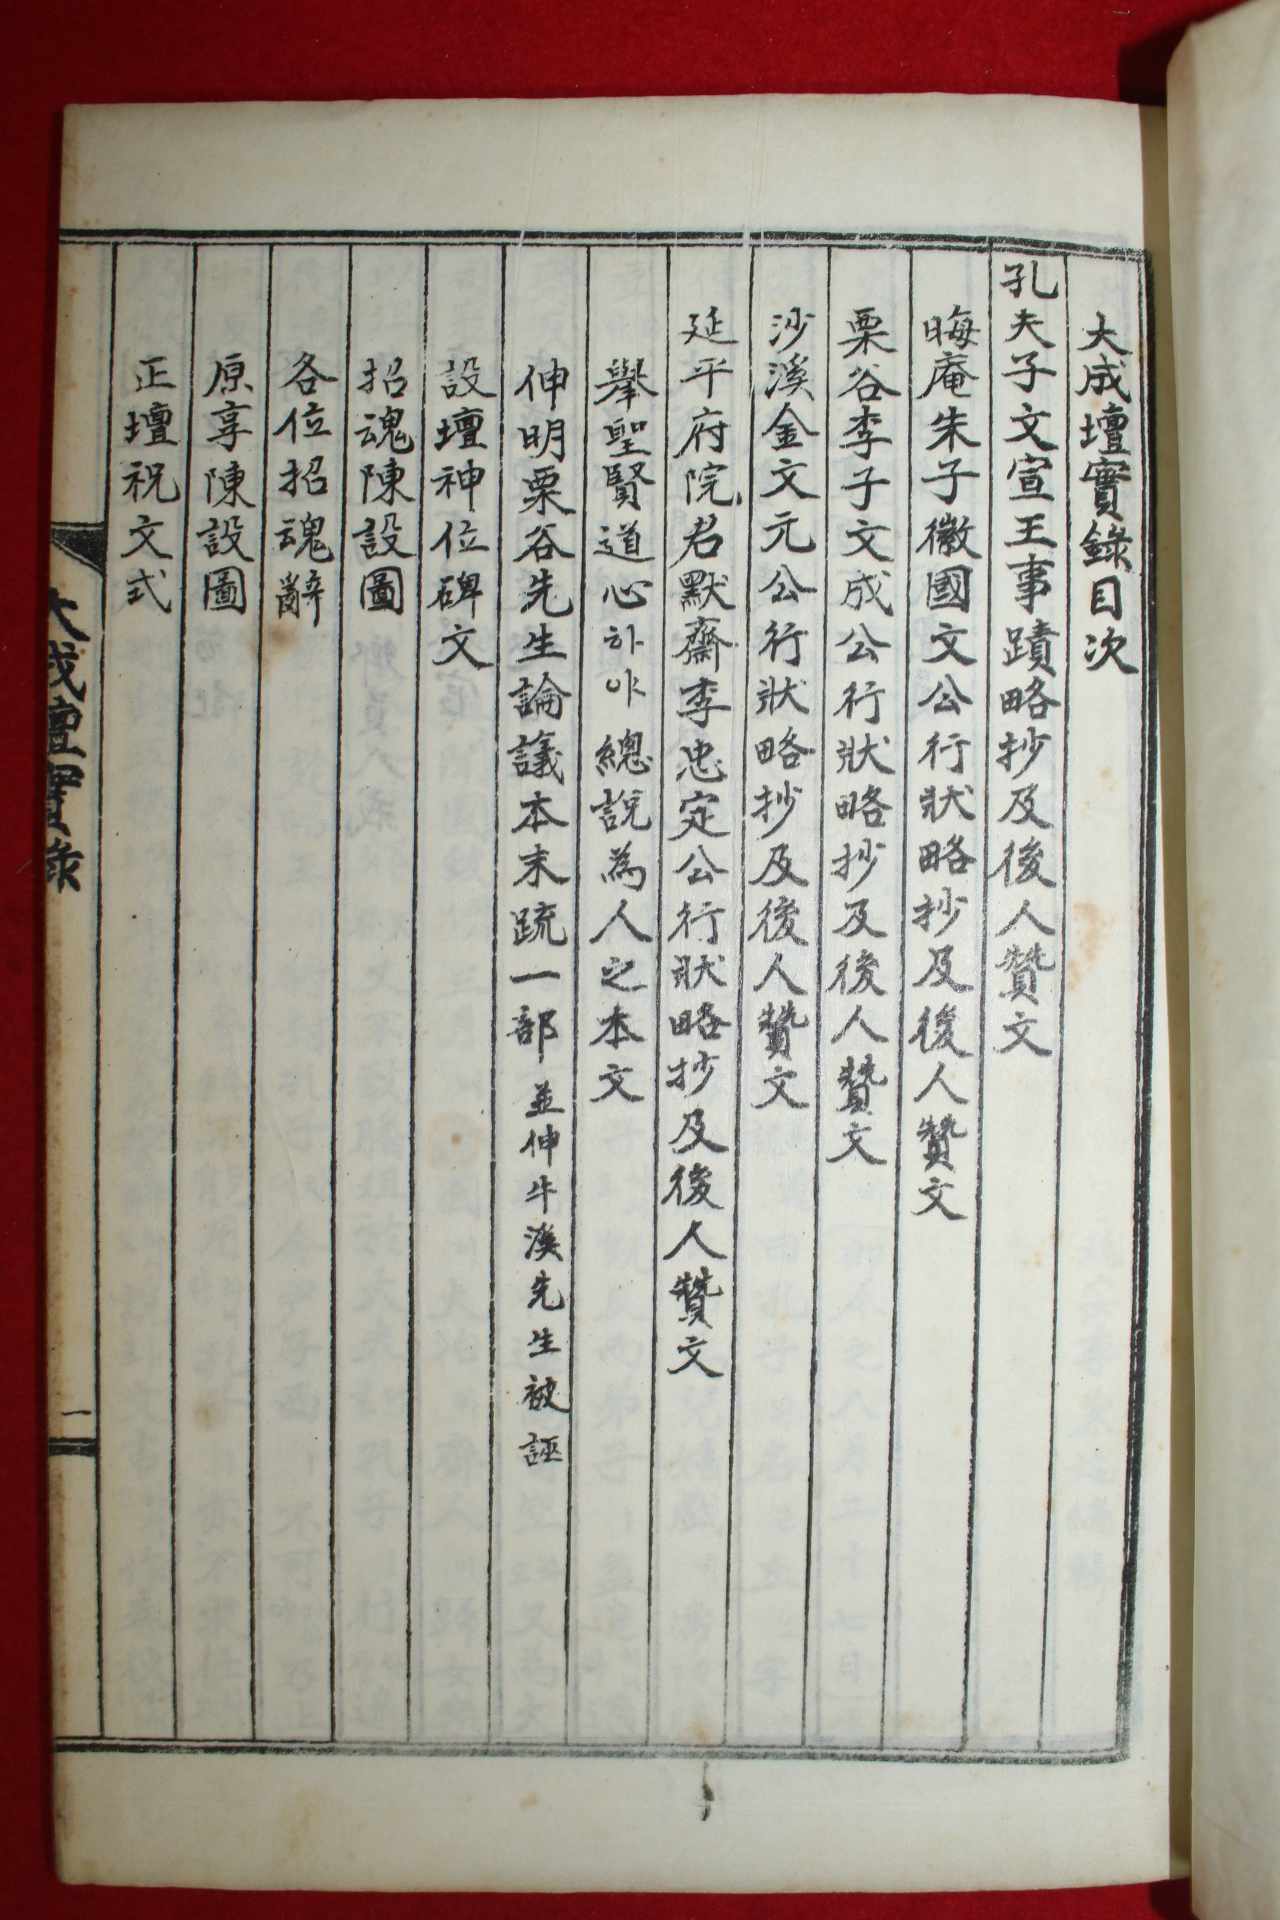 大成壇實錄目次
孔夫子文宣王事蹟略抄及後人贊文
晦庵朱子徽國文公行狀略抄及後人贊文
栗谷李子文成公行狀略抄及後人贊文
沙溪金文元公行狀略抄及後人贊文
延平府院君默齋李忠定公行狀略抄及後人贊文
擧聖賢道心하야總說為人之本文
伸明栗谷先生論議本末疏一部並伸牛溪先生被誣
設壇神位碑文
招魂陳設圖
各位招魂辭
原享陳設圖
正壇祝文式
大成壇實錄
一